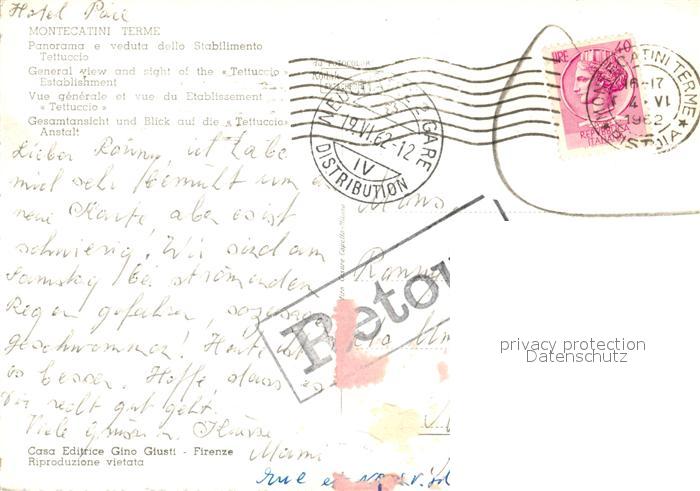 Hotel Pace
MONTECATINI TERME
Panorama e veduta dello Stabilimento
Tettuccio
General view and sight of the « Tettuccio »
Establishment
Vue générale et vue du Etablissement
« Tettuccio »
Gesamtansicht und Blick auf die « Tettuccio »
Anstalt
Lieber Ronny, ich habe
mich sehr bemüht um
neue Karte, aber es ist
schwierig. Wir sind am
Samstag bei strömenden
Regen gefahren, sozusagen
geschwommen! Heute ist
es besser. Hoffe dass es
Dir recht gut geht.
Viele Grüsse u. Küsse
Mami
Casa Editrice Gino Giusti - Firenze
Riproduzione vietata
19.VI.62-12
IV
DISTRIBUTION
LIRE 40
REPUBBLICA
ITALIANA
MONTECATINI TERME
16-17
4 VI
1962
PISTOIA
Mons.
Retou
privacy protection
Datenschutz
rue